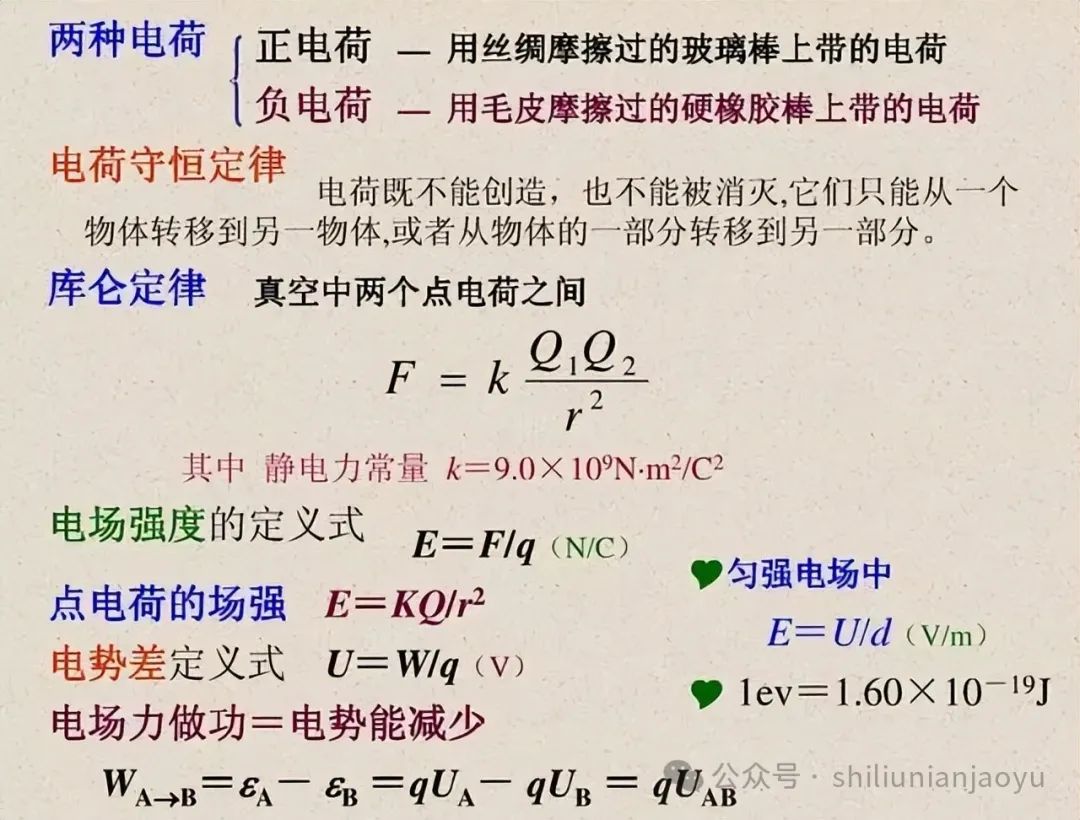 两种电荷
正电荷 — 用丝绸摩擦过的玻璃棒上带的电荷
负电荷 — 用毛皮摩擦过的硬橡胶棒上带的电荷
电荷守恒定律
电荷既不能创造，也不能被消灭,它们只能从一个
物体转移到另一物体,或者从物体的一部分转移到另一部分。
库仑定律 真空中两个点电荷之间
F = k Q₁Q₂ / r²
其中 静电力常量 k＝9.0×10⁹N·m²/C²
电场强度的定义式 E＝F/q（N/C）
点电荷的场强 E＝KQ/r²
电势差定义式 U＝W/q（V）
电场力做功＝电势能减少
W_A→B＝ε_A－ ε_B ＝qU_A－ qU_B ＝ qU_AB
匀强电场中
E＝U/d（V/m）
1ev＝1.60×10⁻¹⁹J
公众号 · shiliunianjaoyu